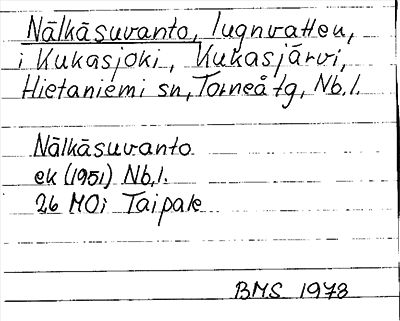 Nälkäsuvanto, lugnvatten,
i Kukasjoki, Kukasjärvi,
Hietaniemi sn, Torneå tg, Nb.l.
Nälkäsuvanto
ek (1951) Nb.l.
26 MOi Taipale
BMS 1978